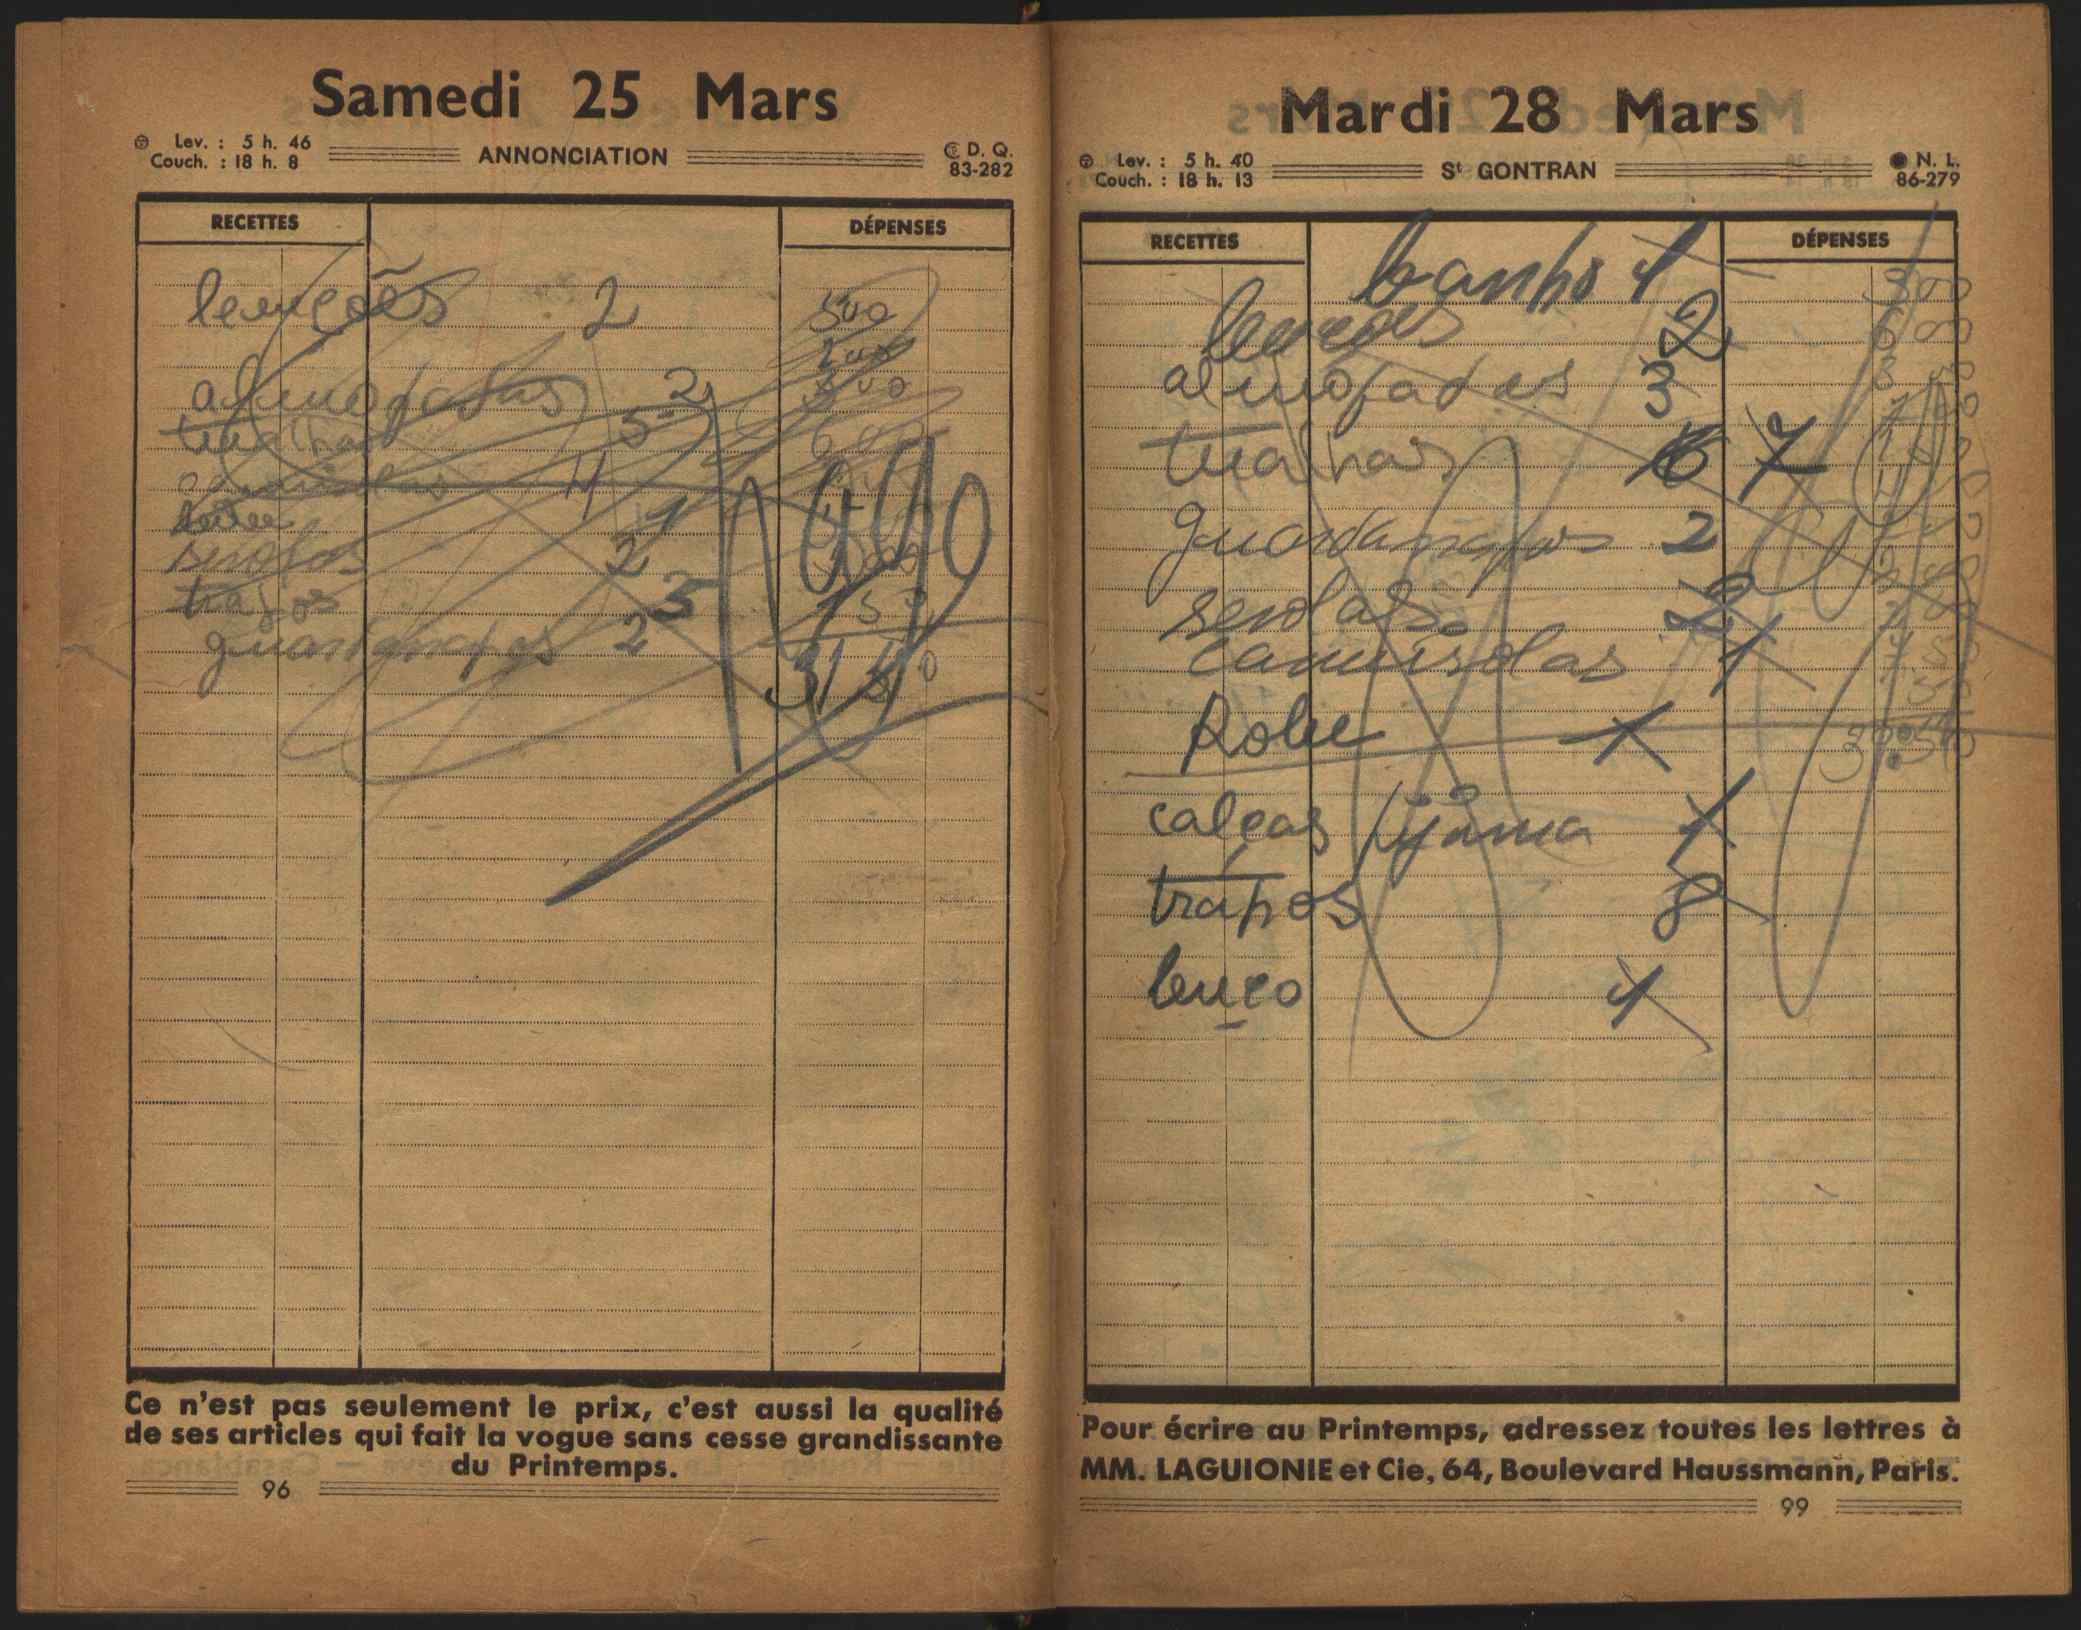 Samedi 25 Mars
Lev. : 5 h. 46
Couch. : 18 h. 8
ANNONCIATION
D. Q.
83-282
RECETTES
DÉPENSES
lençoes 2 500
almofadas 2
toalhas 5
camisolas 4
1
serolas 2
trapos 3
guardanapos 2
Ce n'est pas seulement le prix, c'est aussi la qualité
de ses articles qui fait la vogue sans cesse grandissante
du Printemps.
96
Mardi 28 Mars
Lev. : 5 h. 40
Couch. : 18 h. 13
St GONTRAN
N. L.
86-279
RECETTES
DÉPENSES
banho 1
lençoes 2
almofadas 3
toalhas 6 7
guardanapos 2
serolas 2
camisolas 1
Robe 1
calças pijama 1
trapos 8
lenço 1
Pour écrire au Printemps, adressez toutes les lettres à
MM. LAGUIONIE et Cie, 64, Boulevard Haussmann, Paris.
99